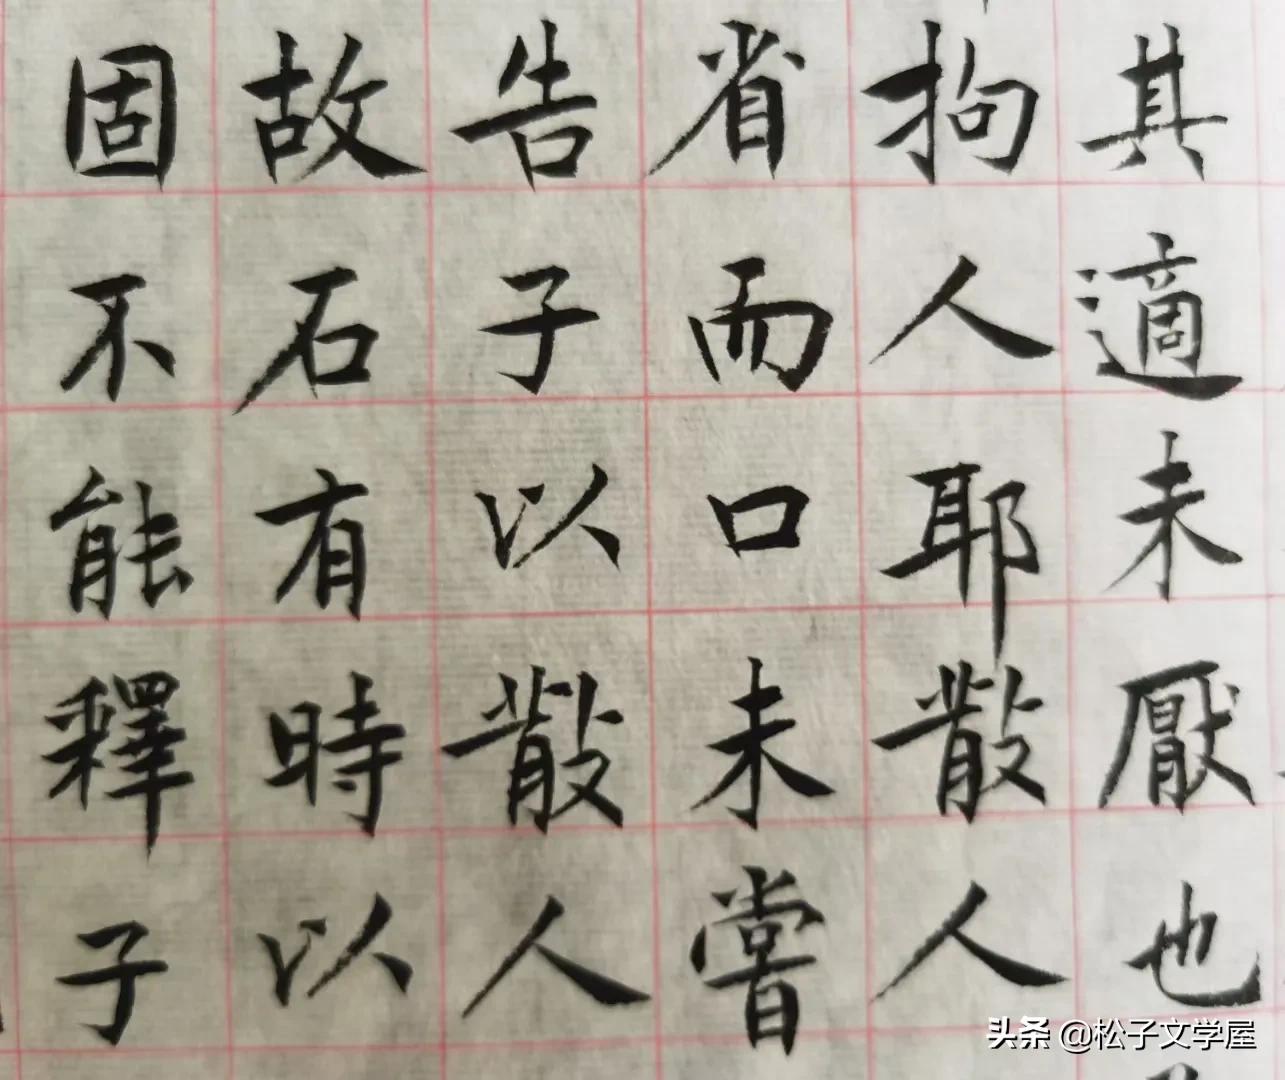 其適未厭也
拘人耶散人
省而口未嘗
告子以散人
故石有時以
固不能釋子
头条 @松子文学屋